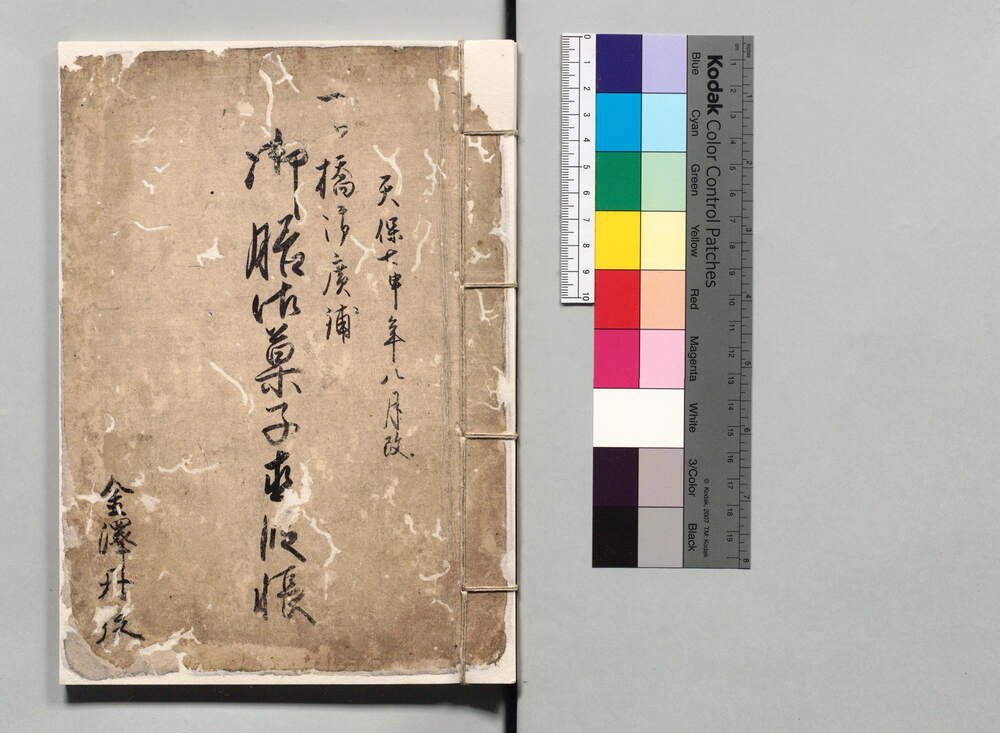 天保七申年八月改
一ッ橋御廣鋪
御膳御菓子直段帳
金澤丹後
Kodak Color Control Patches
Blue Cyan Green Yellow Red Magenta White 3/Color Black
© Kodak, 2007 TM: Kodak
0 1 2 3 4 5 6 7 8 9 10
1 2 3 4 5 6 7 8 9 10 11 12 13 14 15 16 17 18 19
1 2 3 4 5 6 7 8